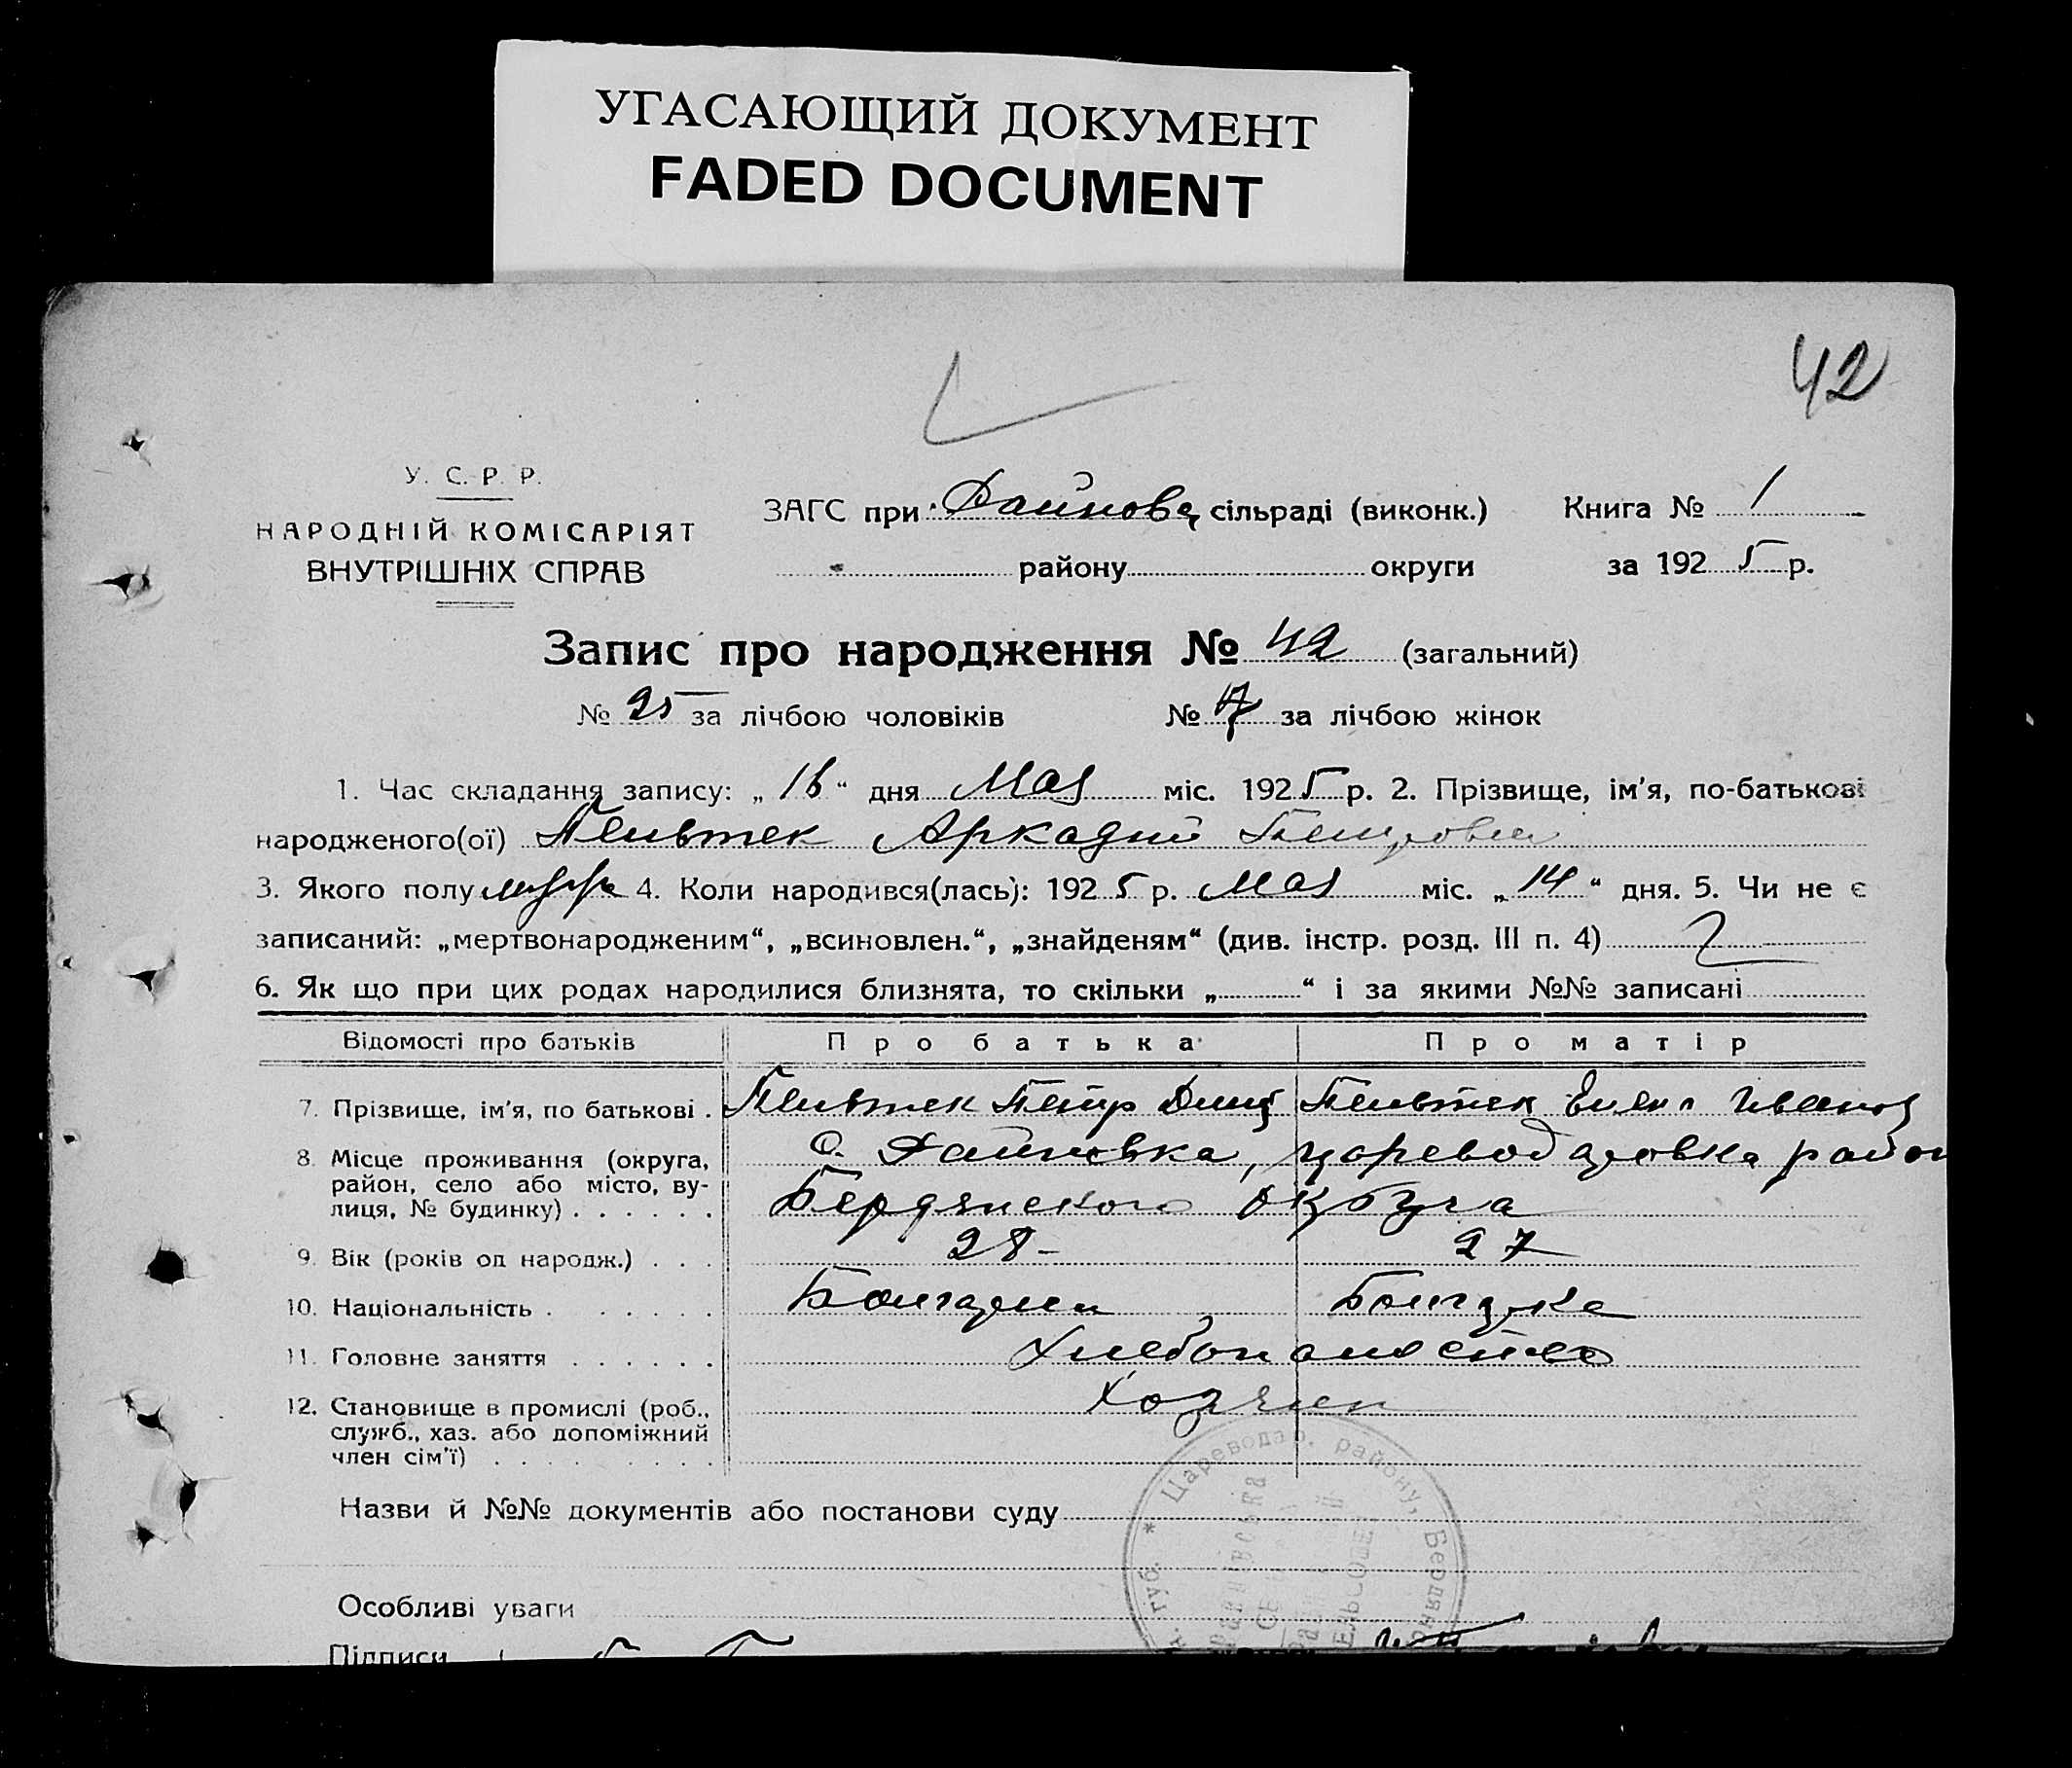 УГАСАЮЩИЙ ДОКУМЕНТ
FADED DOCUMENT
42
У. С. Р. Р.
НАРОДНІЙ КОМІСАРІЯТ
ВНУТРІШНІХ СПРАВ
ЗАГС при сільраді (виконк.) Книга № 1
району округи за 1925 р.
Запис про народження № 42 (загальний)
№ 25 за лічбою чоловіків № за лічбою жінок
1. Час складання запису: „16“ дня Мая міс. 1925 р. 2. Прізвище, ім'я, по-батькові
народженого(ої) Аркадий Петрович
3. Якого полу 4. Коли народився(лась): 1925 р. Мая міс. „14“ дня. 5. Чи не є
записаний: „мертвонародженим“, „всиновлен.“, „знайденям“ (див. інстр. розд. III п. 4)
6. Як що при цих родах народилися близнята, то скільки „ “ і за якими №№ записані
Відомості про батьків Про батька Про матір
7. Прізвище, ім'я, по батькові . Петр Дмит Елена Иванов
8. Місце проживання (округа, район, село або місто, ву-лиця, № будинку) . . . . . . с. Райновка, район
Бердянского округа
9. Вік (років од народж.) . . . 28 - 27
10. Національність . . . . . . . Болгарин Болгарка
11. Головне заняття . . . . . . Хлебопашество
12. Становище в промислі (роб., служб., хаз. або допоміжний член сім'ї) . . . . . . . . . Хозяин
Назви й №№ документів або постанови суду
Особливі уваги
Підписи
Цареводар. району, Бердянс губ. *